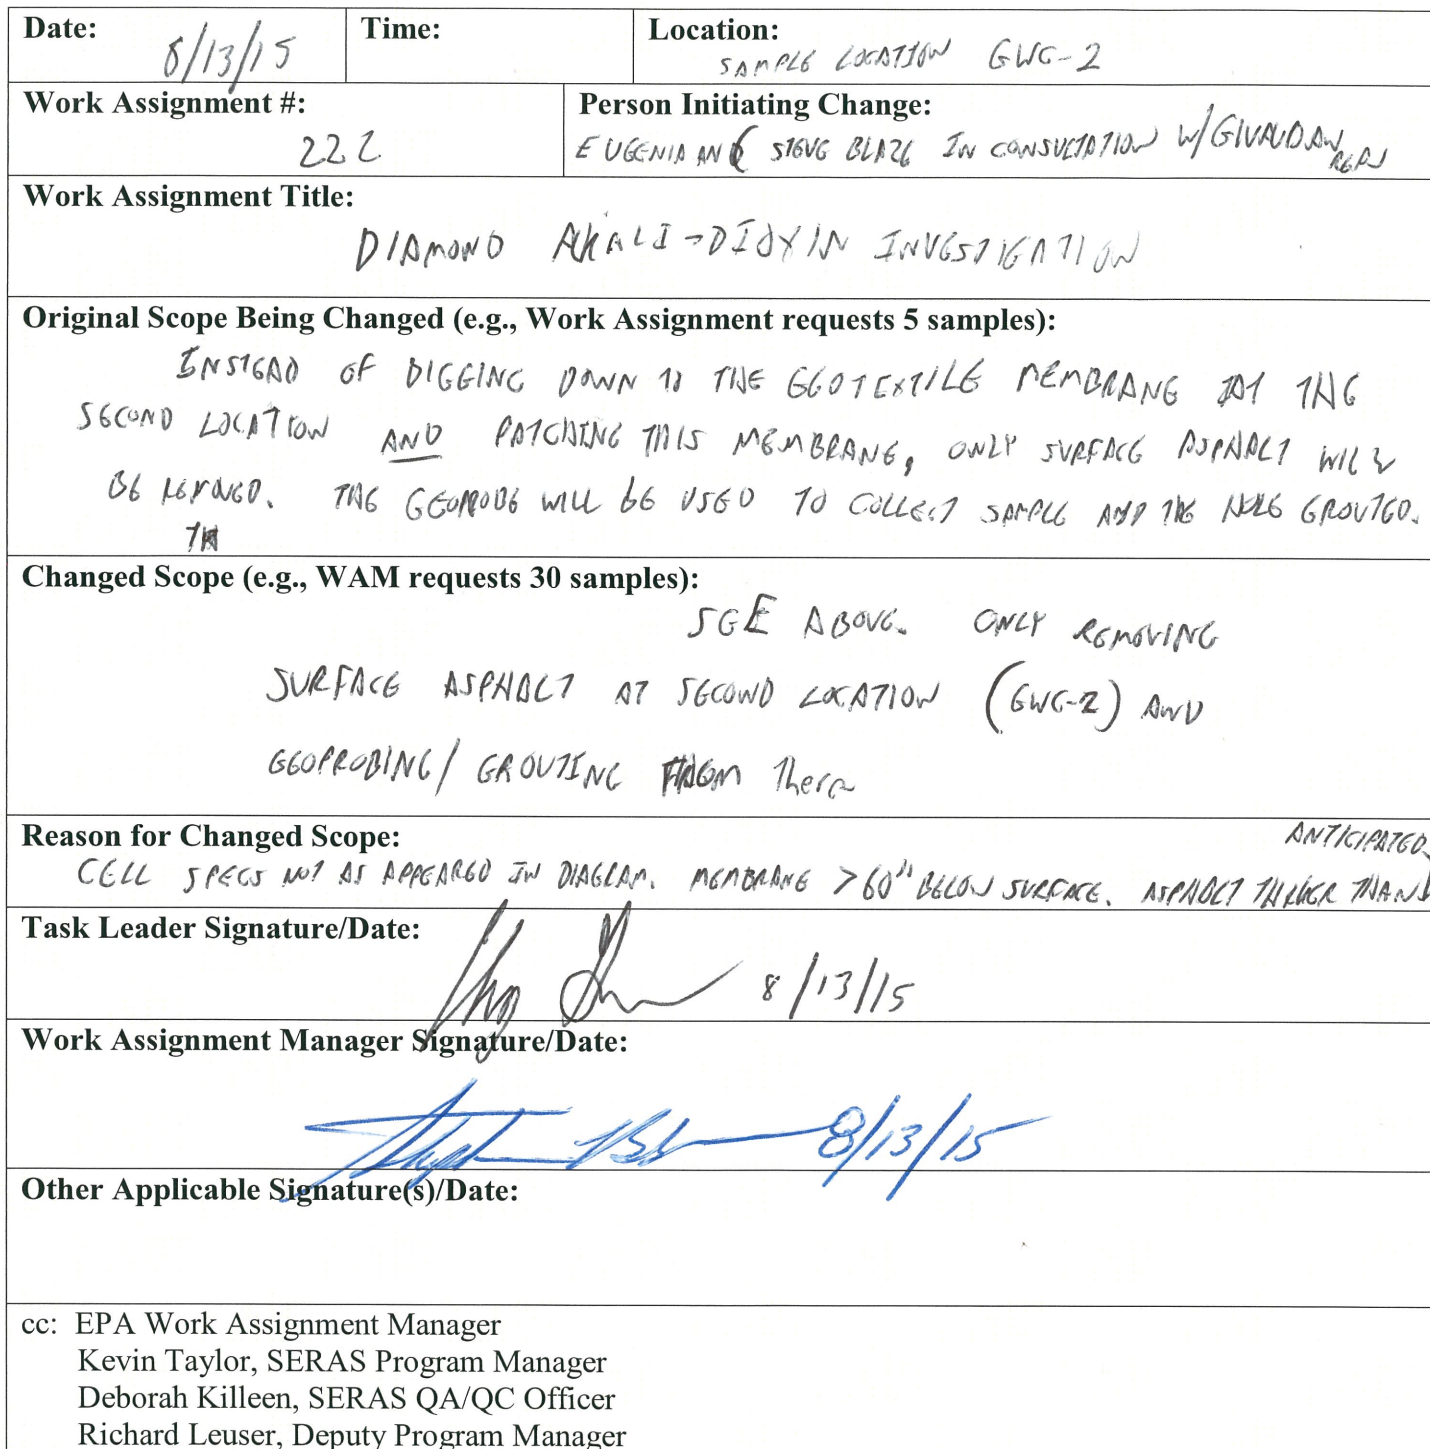 Date: 8/13/15
Time:
Location: SAMPLE LOCATION GWG-2
Work Assignment #: 222
Person Initiating Change:
EUGENIA AND STEVE BLAZE IN CONSULTATION W/GIVAUDAN REPS
Work Assignment Title:
DIAMOND AKALI - DIOXIN INVESTIGATION
Original Scope Being Changed (e.g., Work Assignment requests 5 samples):
INSTEAD OF DIGGING DOWN TO THE GEOTEXTILE MEMBRANE AT THE
SECOND LOCATION AND PATCHING THIS MEMBRANE, ONLY SURFACE ASPHALT WILL
BE REMOVED. THE GEOPROBE WILL BE USED TO COLLECT SAMPLE AND THE HOLE GROUTED.
Changed Scope (e.g., WAM requests 30 samples):
SEE ABOVE. ONLY REMOVING
SURFACE ASPHALT AT SECOND LOCATION (GWG-2) AND
GEOPROBING/GROUTING FROM There
Reason for Changed Scope:
CELL SPECS NOT AS APPEARED IN DIAGRAM. MEMBRANE >60" BELOW SURFACE. ASPHALT THICKER THAN ANTICIPATED
Task Leader Signature/Date:
8/13/15
Work Assignment Manager Signature/Date:
8/13/15
Other Applicable Signature(s)/Date:
cc: EPA Work Assignment Manager
Kevin Taylor, SERAS Program Manager
Deborah Killeen, SERAS QA/QC Officer
Richard Leuser, Deputy Program Manager